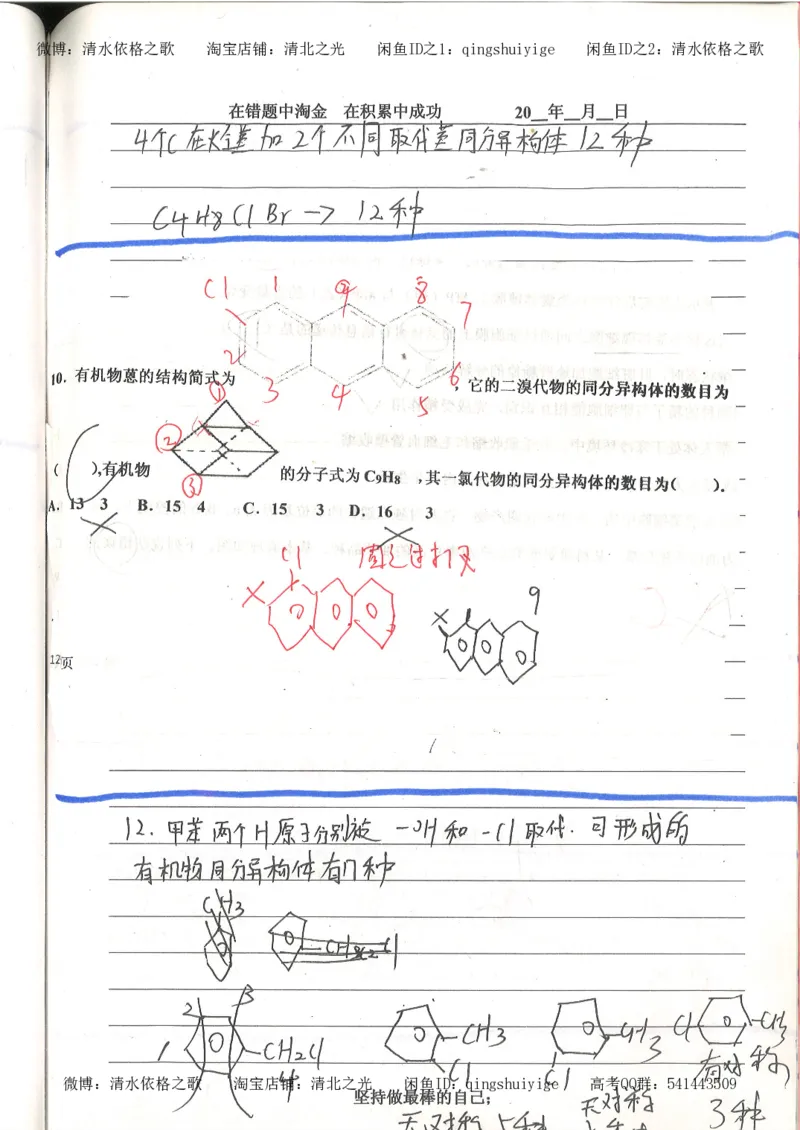 微博：清水依格之歌 淘宝店铺：清北之光 闲鱼ID之1：qingshuiyige 闲鱼ID之2：清水依格之歌
在错题中淘金 在积累中成功 20__年__月__日
4个C在烃基加2个不同取代基同分异构体12种
C4H8ClBr → 12种
Cl 1 9 8 7
2 3 4 5 6
10．有机物蒽的结构简式为 ，它的二溴代物的同分异构体的数目为
① ② ③
( ),有机物 的分子式为C9H8 ,其一氯代物的同分异构体的数目为( ).
A. 13 3 B. 15 4 C. 15 3 D. 16 3
Cl 固定
9
12页
12. 甲苯两个H原子分别被 -OH和-Cl取代. 可形成的
有机物同分异构体有 种
CH3
2 3
1 CH2Cl 4
CH3 Cl
CH3 Cl
Cl CH3
有对称
3种
微博：清水依格之歌 淘宝店铺：清北之光 闲鱼ID：qingshuiyige 高考QQ群：541443509
坚持做最棒的自己；
无对称 5种
无对称